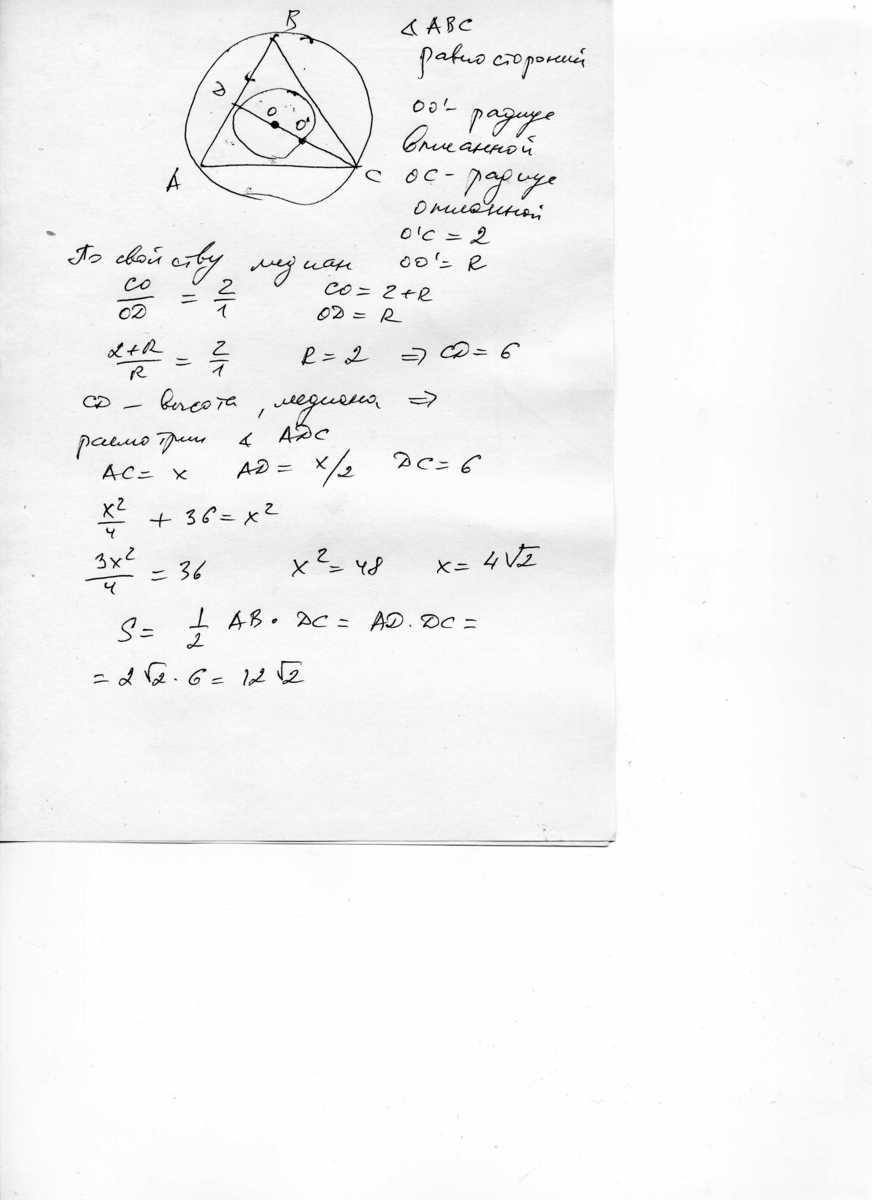 B
∢ ABC
равносторонний
D
O
O'
A
C
OO' - радиус
вписанной
OC - радиус
описанной
O'C = 2
По свойству медиан OO' = R
CO/OD = 2/1 CO = 2+R
OD = R
2+R/R = 2/1 R = 2 ⇒ CD = 6
CD - высота, медиана ⇒
расмотрим ∢ ADC
AC = x AD = x/2 DC = 6
x²/4 + 36 = x²
3x²/4 = 36 x² = 48 x = 4√2
S = 1/2 AB · DC = AD · DC =
= 2√2 · 6 = 12√2